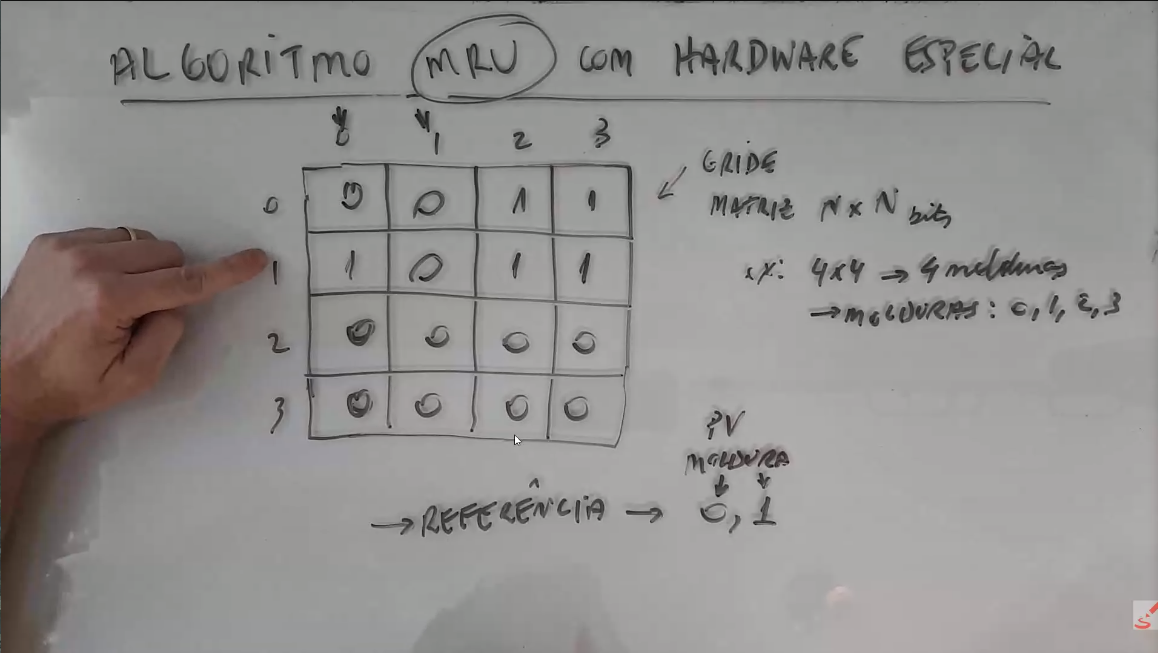 ALGORITMO MRU COM HARDWARE ESPECIAL
0 1 2 3
0 0 0 1 1
1 1 0 1 1
2 0 0 0 0
3 0 0 0 0
GRIDE
MATRIZ N x N bits
ex: 4x4 → 4 molduras
→ MOLDURAS: 0, 1, 2, 3
PV
MOLDURA
→ REFERÊNCIA → 0, 1